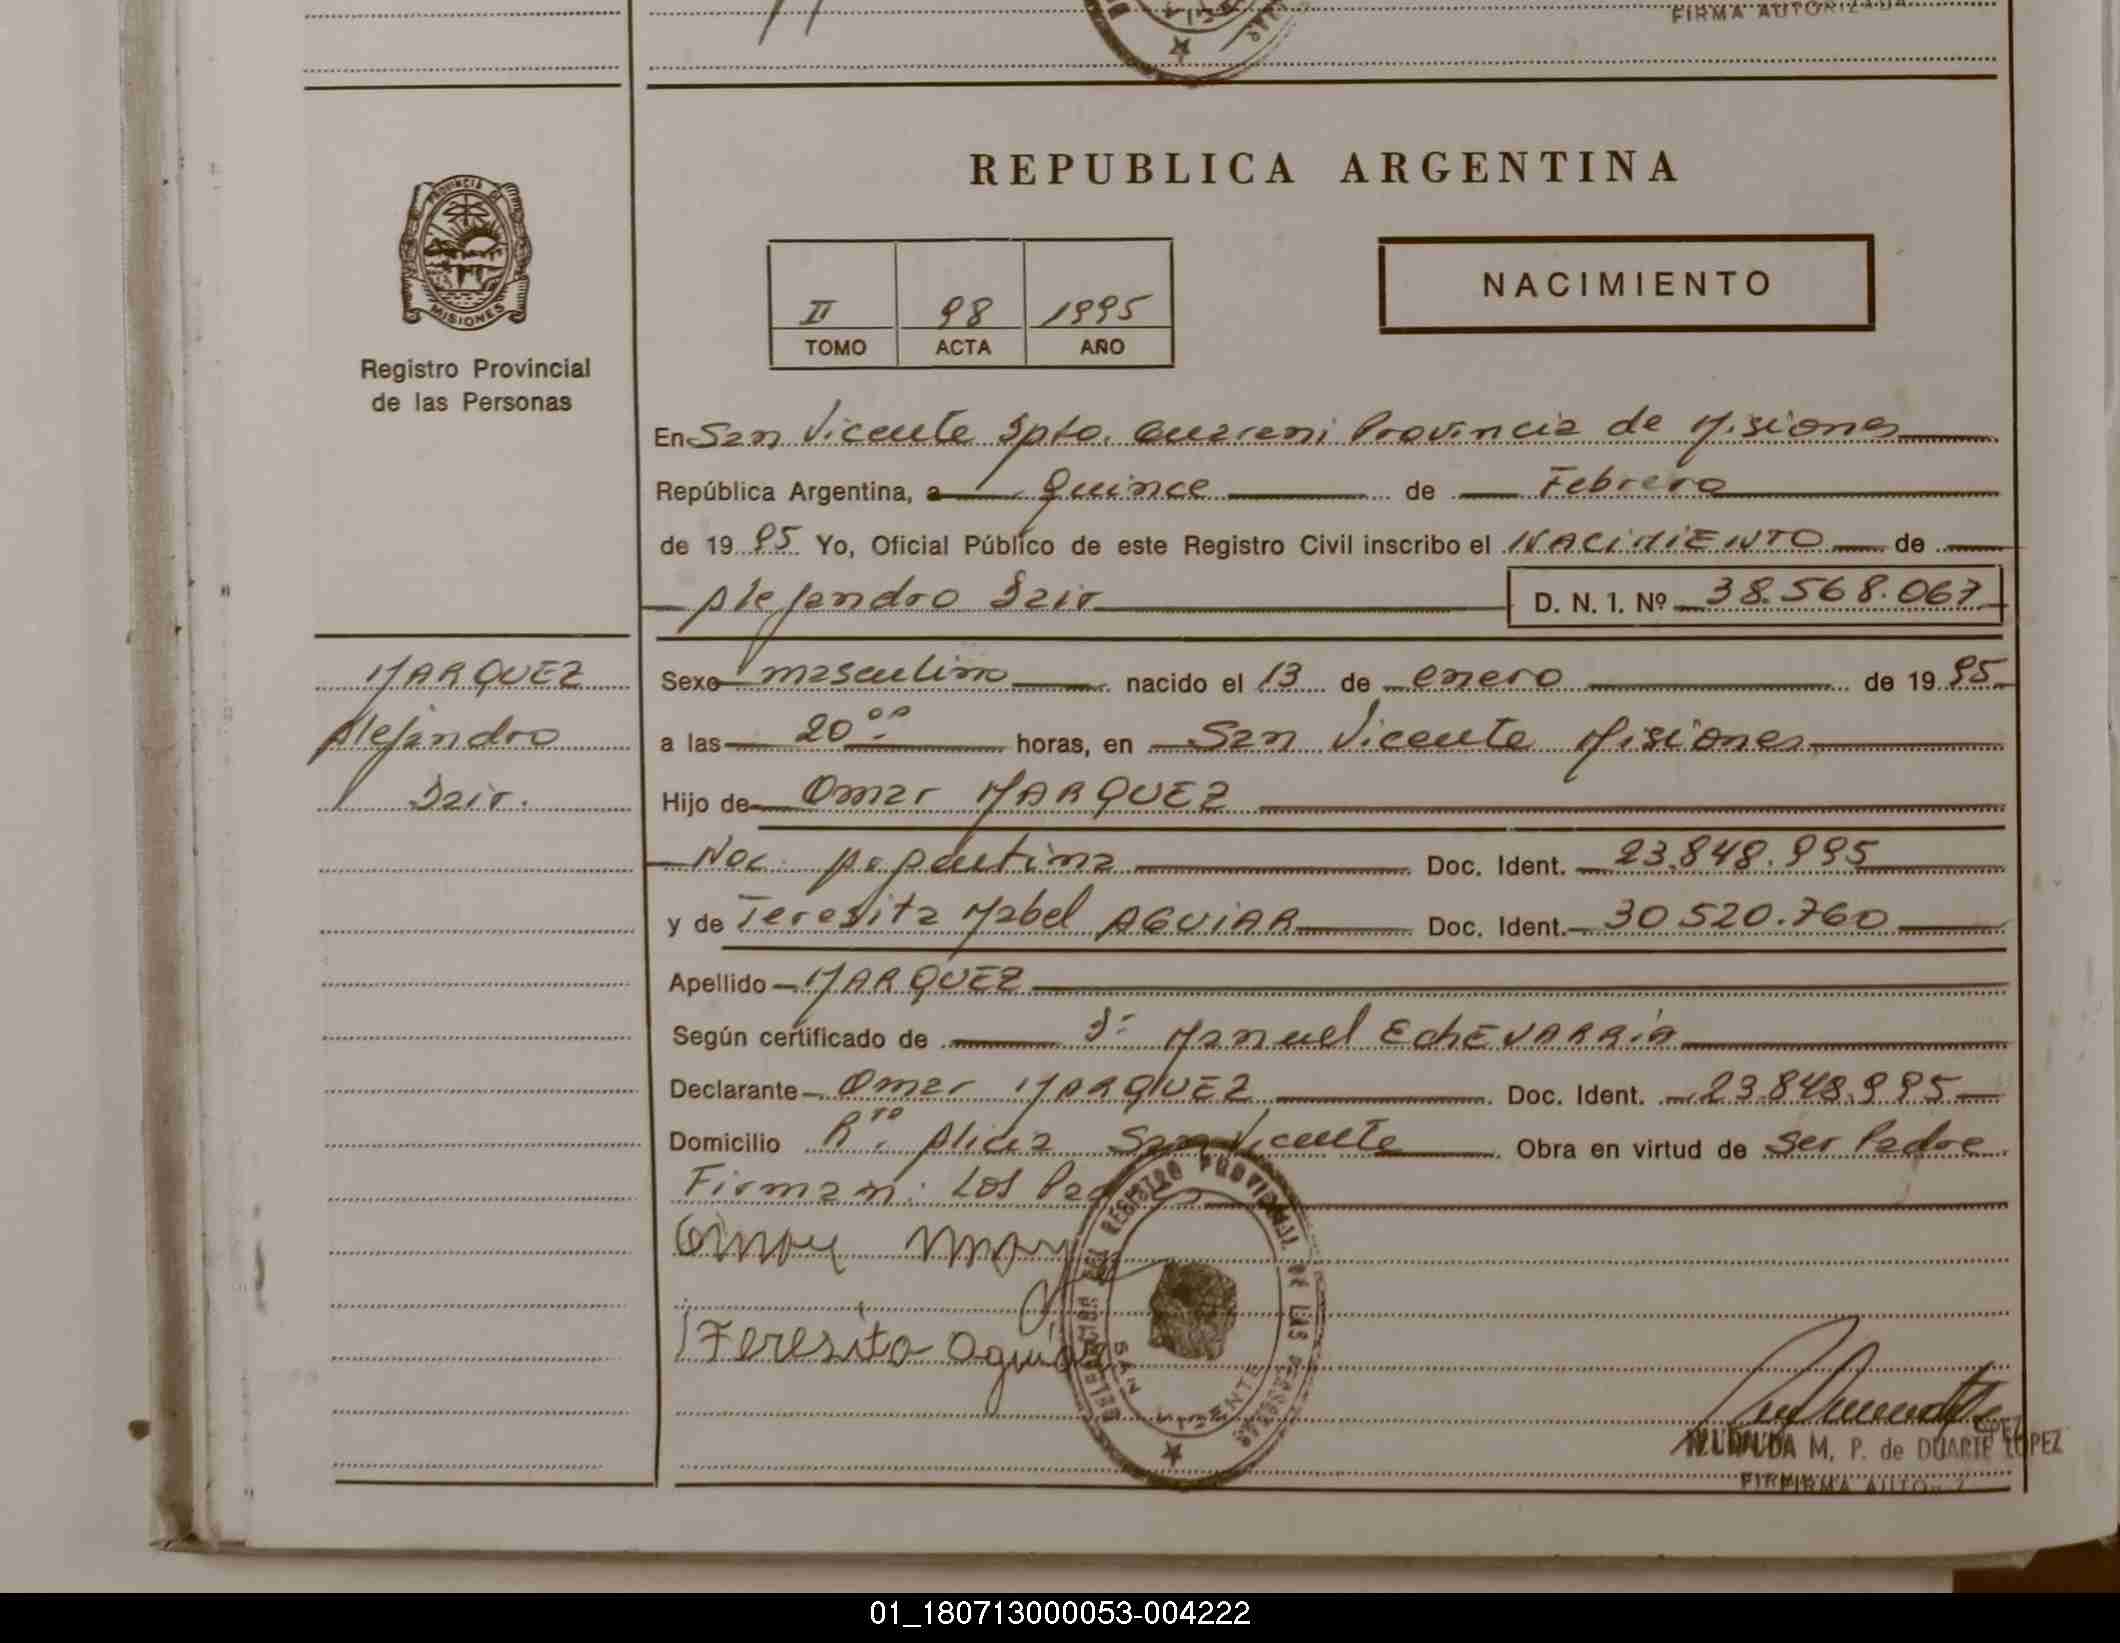 FIRMA AUTORIZADA
REPUBLICA ARGENTINA
PROVINCIA DE
MISIONES
Registro Provincial
de las Personas
II 98 1995
TOMO ACTA AÑO
NACIMIENTO
En San Vicente Dpto. Guarani Provincia de Misiones
República Argentina, a Quince de Febrero
de 19 95 Yo, Oficial Público de este Registro Civil inscribo el NACIMIENTO de
Alejandro Dair D. N. I. Nº 38.568.067
MARQUEZ
Alejandro
Dair.
Sexo masculino nacido el 13 de enero de 19 95
a las 20 ºº horas, en San Vicente Misiones
Hijo de Omar MARQUEZ
Nac. Argentina Doc. Ident. 23.848.995
y de Teresita Mabel AGUIAR Doc. Ident. 30520.760
Apellido MARQUEZ
Según certificado de Dr Manuel EchEVARRIA
Declarante Omar MARQUEZ Doc. Ident. 23.848.995
Domicilio Bº Alicia San Vicente Obra en virtud de Ser Padre
Firman: Los Padres
Omar
Teresita Aguiar
DELEGACION DEL REGISTRO PROVINCIAL DE LAS PERSONAS
SAN VICENTE
M. P. de DUARTE LOPEZ
FIRMA AUTO
01_180713000053-004222